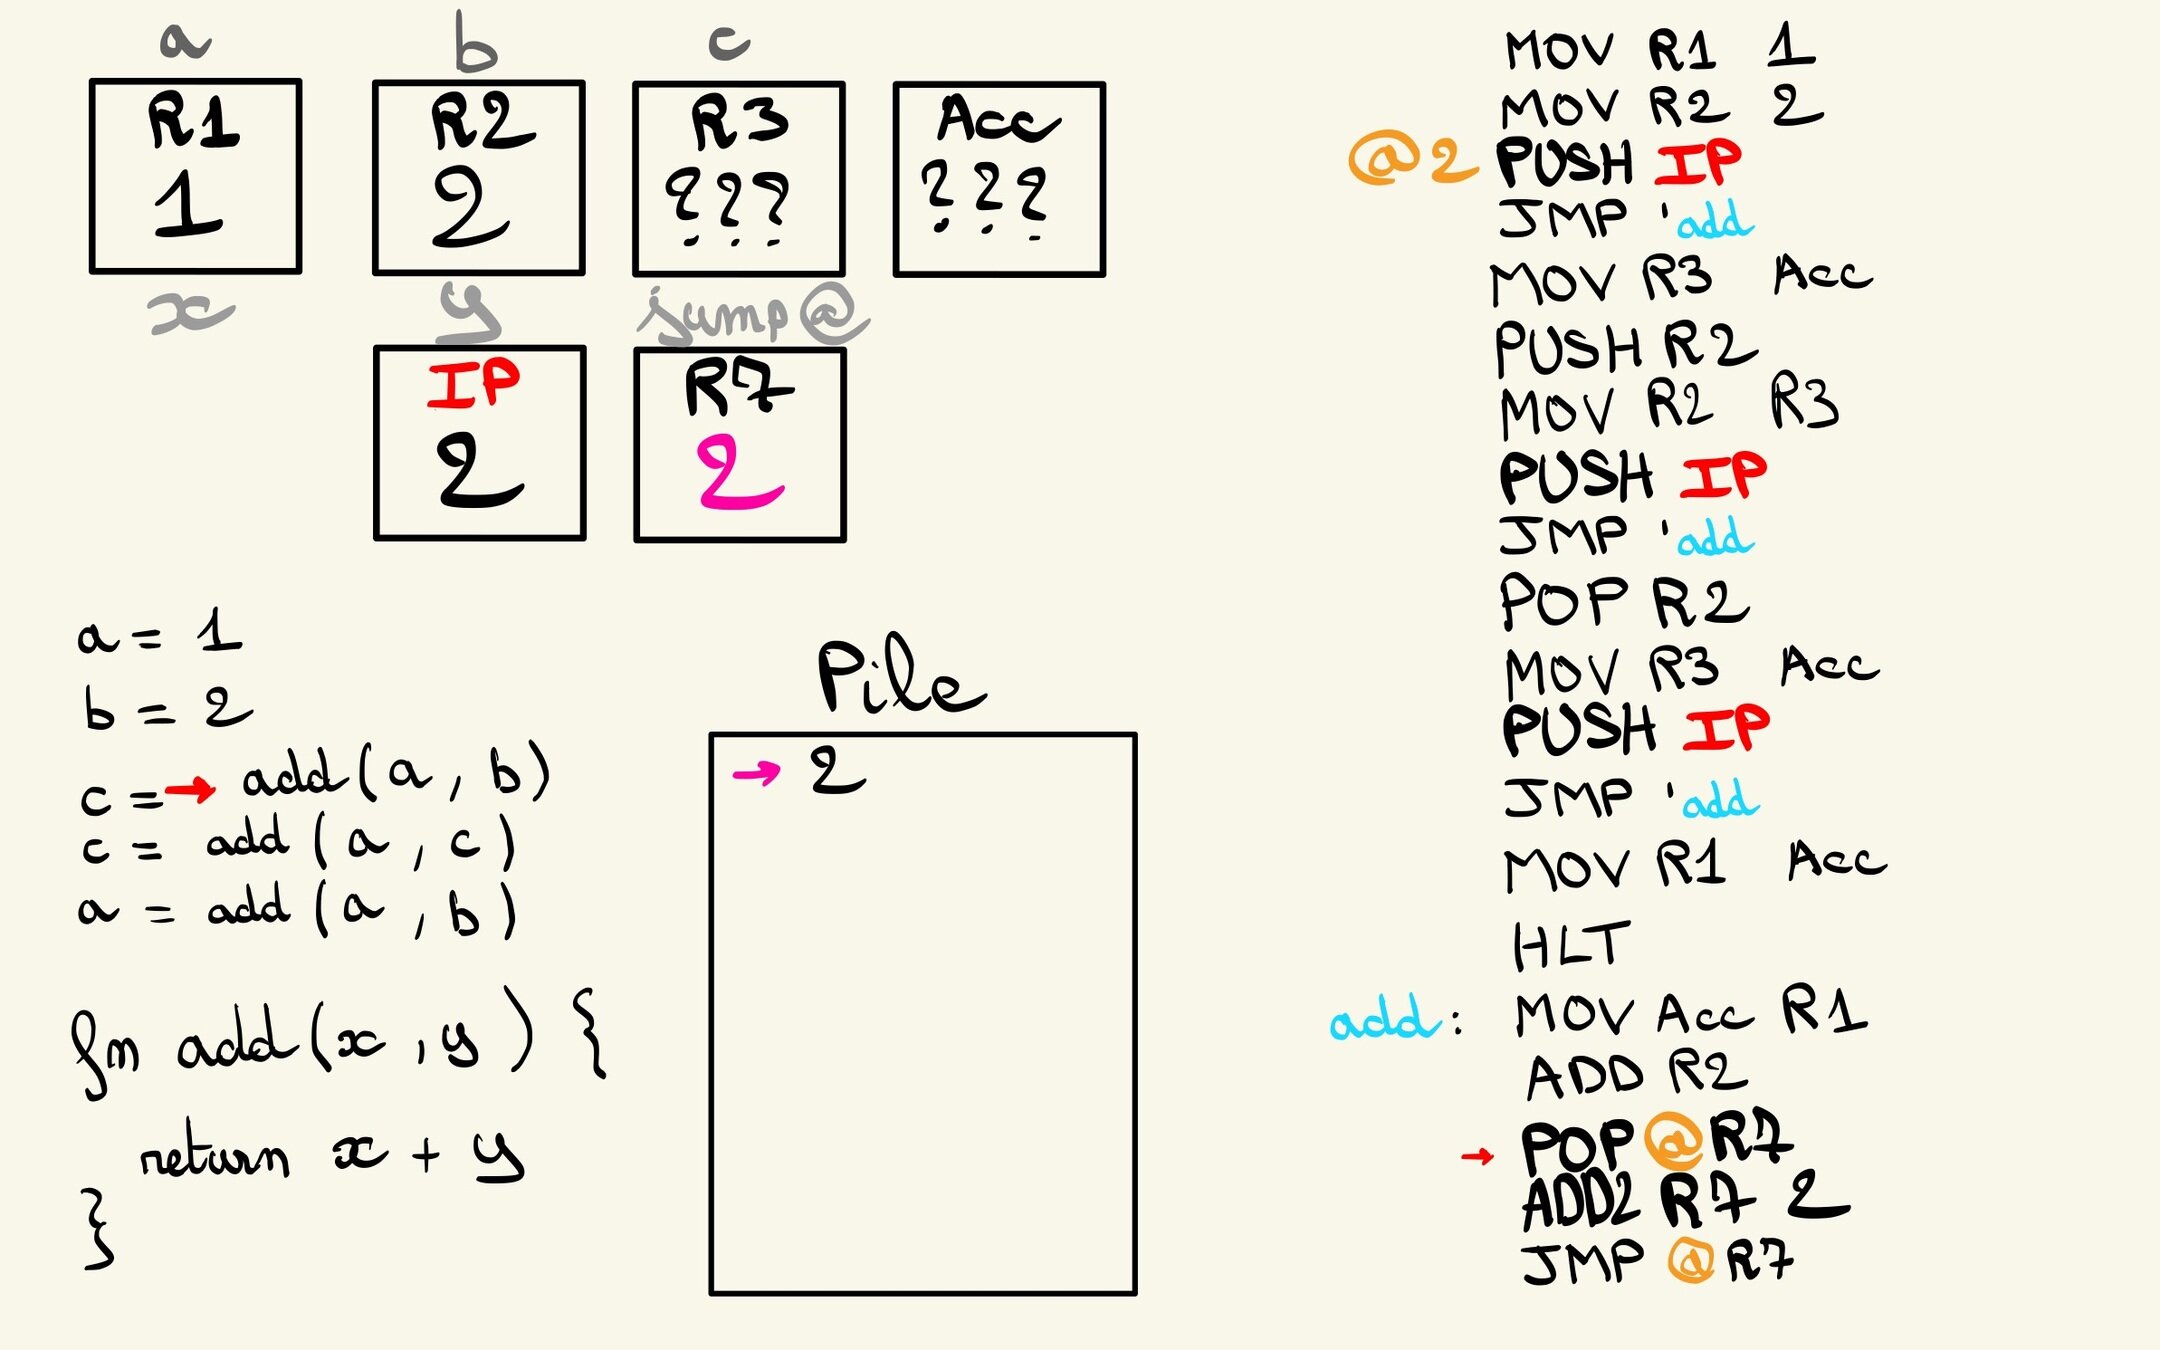 a b c
R1 R2 R3 Acc
1 2 ??? ???
x y jump@
IP R7
2 2
a = 1
b = 2
c = → add(a, b)
c = add(a, c)
a = add(a, b)
fn add(x, y) {
return x + y
}
Pile
→ 2
MOV R1 1
MOV R2 2
@2 PUSH IP
JMP 'add
MOV R3 Acc
PUSH R2
MOV R2 R3
PUSH IP
JMP 'add
POP R2
MOV R3 Acc
PUSH IP
JMP 'add
MOV R1 Acc
HLT
add: MOV Acc R1
ADD R2
→ POP @R7
ADD2 R7 2
JMP @R7